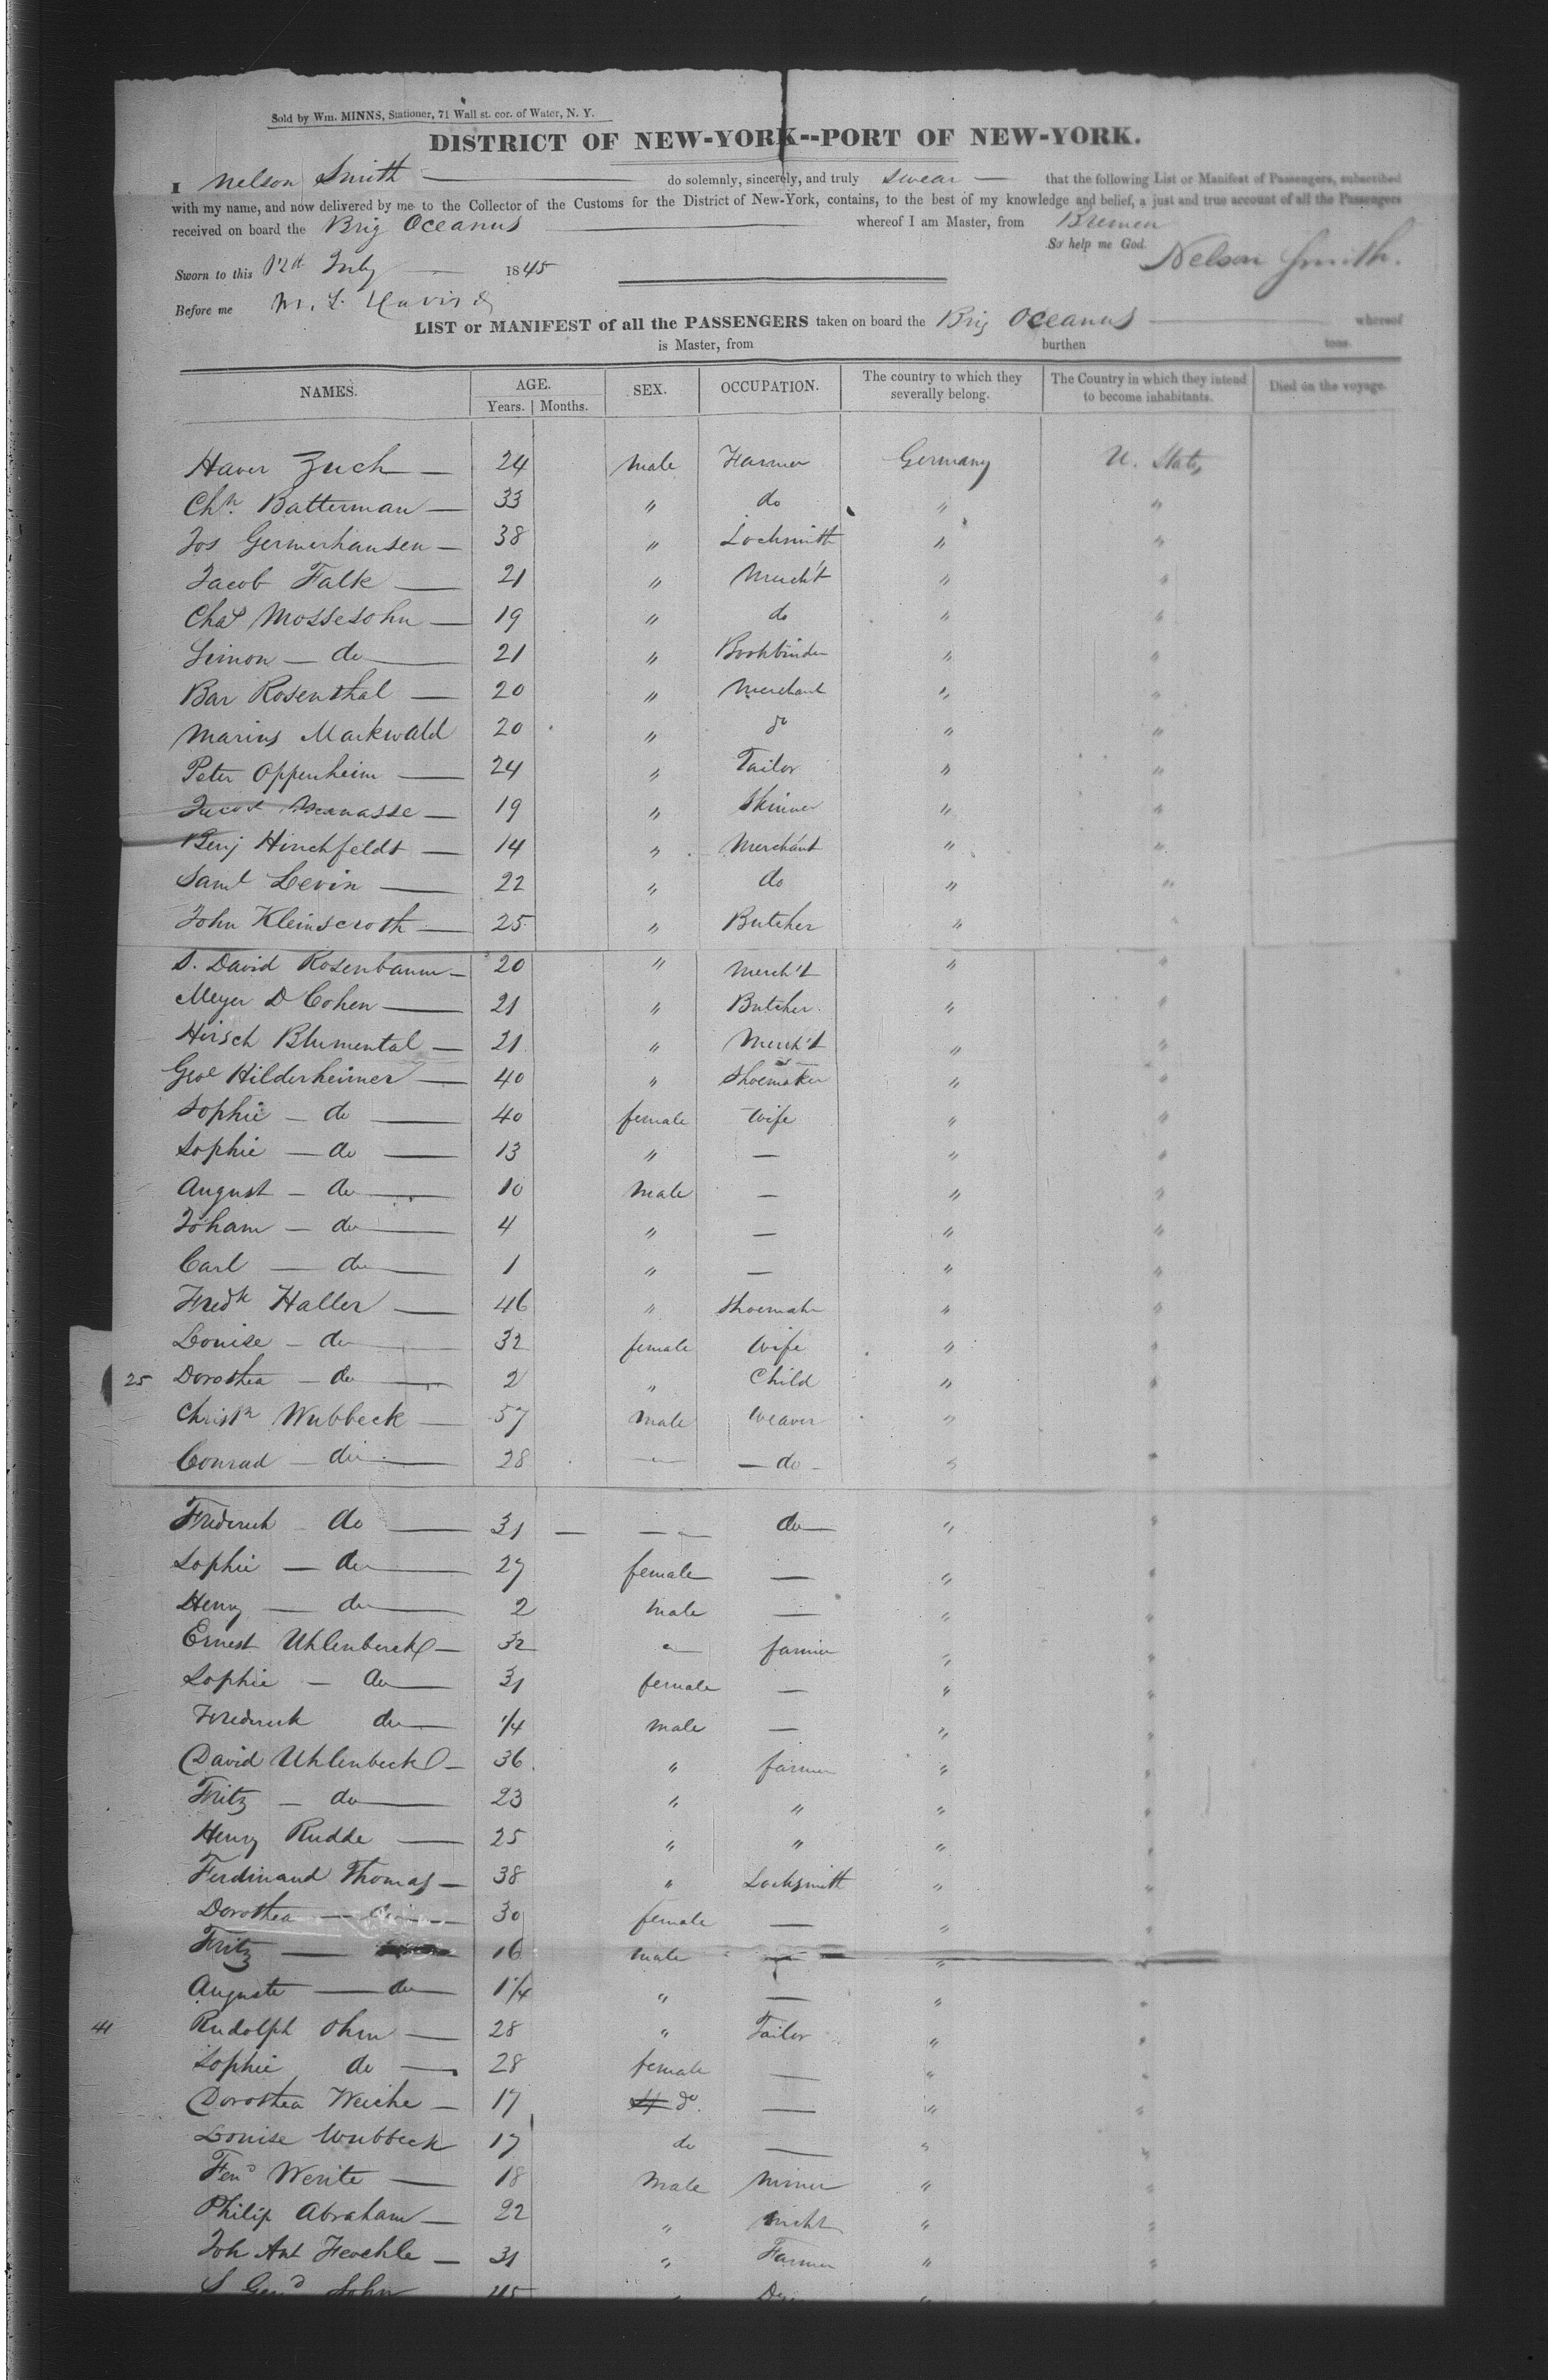 Sold by Wm. MINNS, Stationer, 71 Wall st. cor. of Water, N. Y.
DISTRICT OF NEW-YORK--PORT OF NEW-YORK.
I Nelson Smith do solemnly, sincerely, and truly swear that the following List or Manifest of Passengers, subscribed
with my name, and now delivered by me to the Collector of the Customs for the District of New-York, contains, to the best of my knowledge and belief, a just and true account of all the Passengers
received on board the Brig Oceanus whereof I am Master, from Bremen
So help me God.
Sworn to this 12d July 1845 Nelson Smith.
Before me
LIST or MANIFEST of all the PASSENGERS taken on board the Brig Oceanus whereof
is Master, from burthen tons.
NAMES. AGE. SEX. OCCUPATION. The country to which they severally belong. The Country in which they intend to become inhabitants. Died on the voyage.
Years. Months.
Haver Zuch — 24 male Farmer Germany U. States
Chn. Batterman — 33 " do " "
Jos Germerhausen — 38 " Locksmith " "
Jacob Falk — 21 " Merch't " "
Chas Mossesohn — 19 " do " "
Simon — do — 21 " Bookbinder " "
Bar Rosenthal — 20 " Merchant " "
Marius Markwald 20 " do " "
Peter Oppenheim — 24 " Tailor " "
Jacob Manasse — 19 " Skinner " "
Benj Hirschfeldt — 14 " Merchant " "
Saml Levin — 22 " do " "
John Kleinscroth — 25 " Butcher " "
S. David Rosenbaum — 20 " Merch't " "
Meyer D Cohen — 21 " Butcher. " "
Hirsch Blumental — 21 " Merch't " "
Geoe Hilderheimer — 40 " Shoemaker " "
Sophie — do — 40 female Wife " "
Sophie — do — 13 " — " "
August — do — 10 Male — " "
Joham — do — 4 " — " "
Carl — do — 1 " — " "
Fredk Haller — 46 " Shoemaker " "
Louise — do — 32 female Wife " "
25 Dorothea — do — 2 " Child " "
Christn Wubbeck — 57 Male Weaver " "
Conrad — do — 28 — " — — do — " "
Frederick do — 31 — — " — do — " "
Sophie — do — 27 female — " "
Henry — do — 2 Male — " "
Ernest Uhlenbeck — 32 " farmer " "
Sophie — do — 31 female — " "
Frederick do — 1/4 Male — " "
David Uhlenbeck — 36 " farmer " "
Fritz — do — 23 " " " "
Henry Rudde — 25 " " " "
Ferdinand Thomas — 38 " Locksmith " "
Dorothea — do — 30 female — " "
Fritz — 16 male — " "
Auguste — do — 1 1/4 " — " "
41 Rudolph Ohm — 28 " Tailor " "
Sophie do — 28 female — " "
Dorothea Weiche — 17 do. — " "
Louise Wubbeck 17 do — " "
Fend Werite — 18 Male Miner " "
Philip Abraham — 22 " " "
Joh Ant Feochle — 31 " Farmer " "
S Gerd John 45